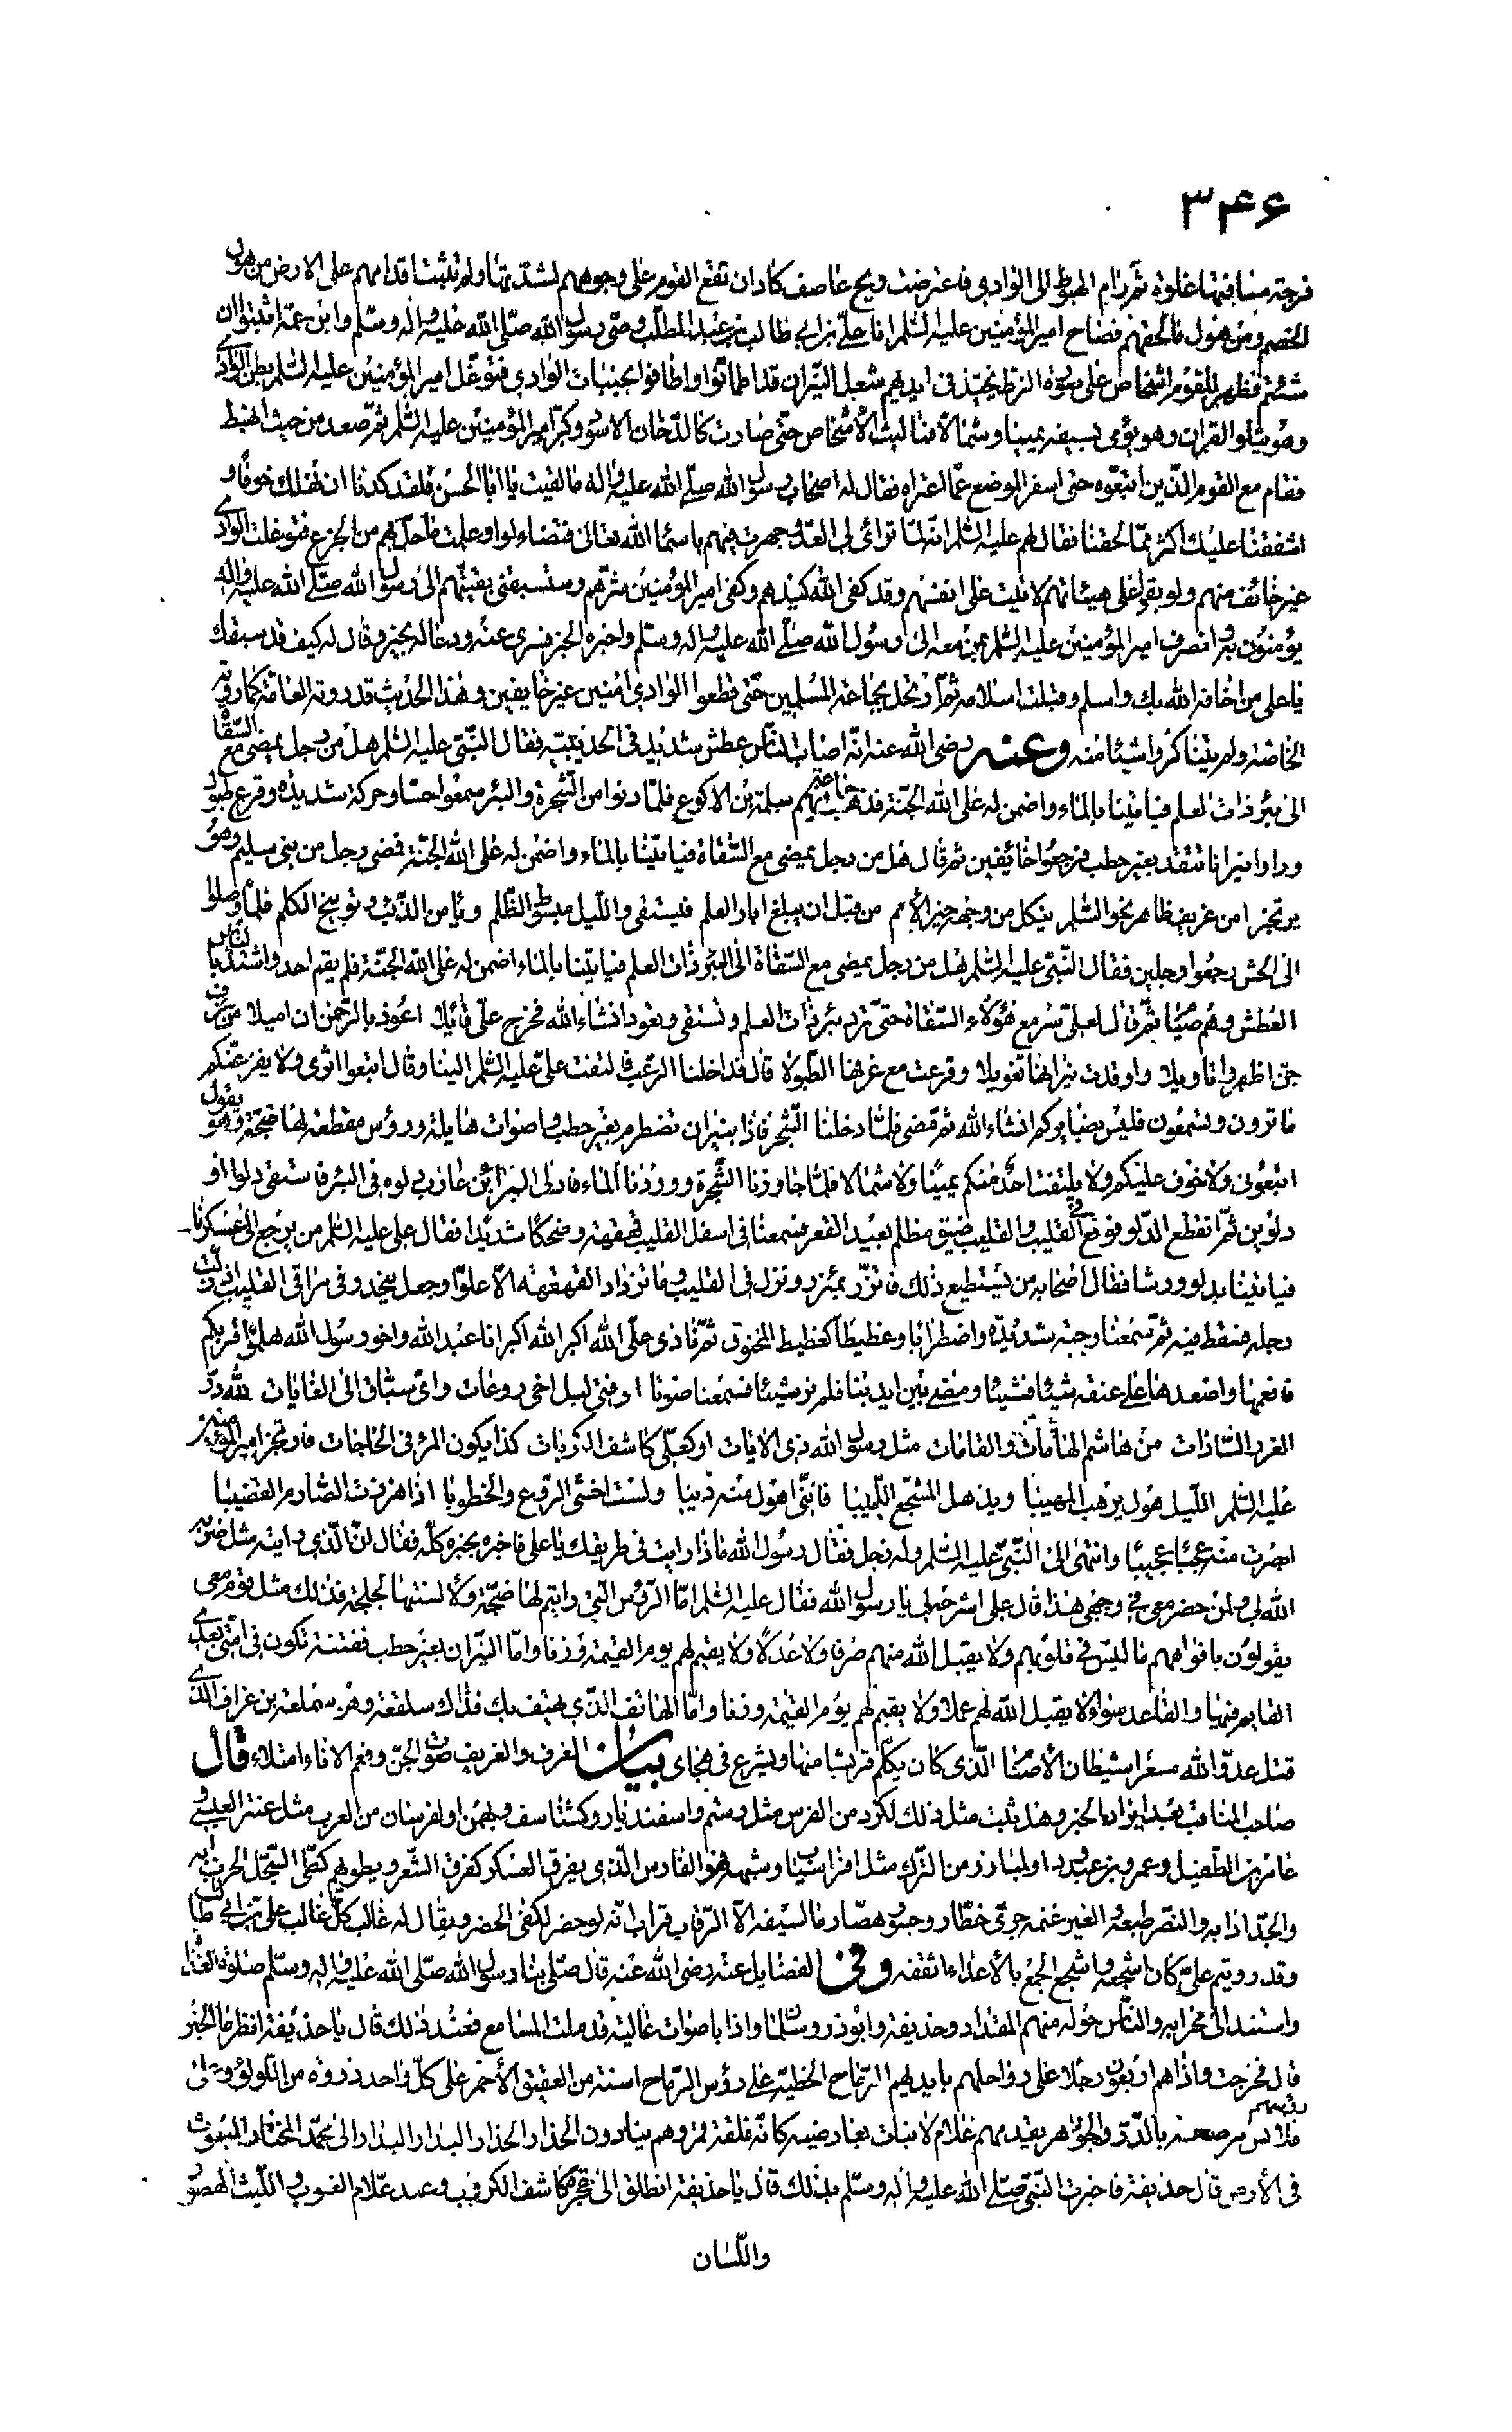 ۳۴۶
فرجة مسافتها غلوة ثم رام الهبوط الى الوادي فاعترضت ريح عاصف كاد ان تقع القوم على وجوههم لشدتها ولم تثبت اقدامهم على الارض من هول
الخصم ومن هول ما لحقهم فصاح امير المؤمنين عليه السلم انا علي بن ابي طالب بن عبد المطلب وصي رسول الله صلى الله عليه واله وسلم وابن عمه اثبتوا ان
شئتم فظهر للقوم اشخاص على صورة الزط يخيل في ايديهم شعل النيران قد اطمأنوا واطافوا بجنبات الوادي فتوغل امير المؤمنين عليه السلم بطن الوادي
وهو يتلو القران وهو يومي بسيفه يمينا وشمالا فما لبث الأشخاص حتى صارت كالدخان الاسود وكبر امير المؤمنين عليه السلم ثم صعد من حيث انهبط
فقام مع القوم الذين اتبعوه حتى اسفر الموضع عما اعتراه فقال له اصحاب رسول الله صلى الله عليه واله ما لقيت يا ابا الحسن فلقد كدنا ان نهلك خوفا و
اشفقنا عليك اكثر مما لحقنا فقال لهم عليه السلم انه لما ترائى لي العدو جهرت فيهم باسماء الله تعالى فتضاءلوا وعلمت ما حل بهم من الجزع فتوغلت الوادي
غير خائف منهم ولو بقوا على هيئاتهم لاتيت على انفسهم وقد كفى الله كيدهم وكفى امير المؤمنين شرهم وستسبقني بقيتهم الى رسول الله صلى الله عليه واله
يؤمنون به وانصرف امير المؤمنين عليه السلم بمن معه الى رسول الله صلى الله عليه واله وسلم واخبره الخبر فسرى عنه ودعا له بخير وقال له كيف قد سبقك
يا علي من اخافه الله بك واسلم وقبلت اسلامه ثم ارتحل بجماعة المسلمين حتى قطعوا الوادي امنين غير خايفين وهذا الحديث قد روته العامة كما روته
الخاصة ولم يتناكروا شيئا منه وعنه رضى الله عنه انه اصاب الناس عطش شديد في الحديبية فقال النبي عليه السلم هل من رجل يمضى مع السقاة
الى بئر ذات العلم فيأتينا بالماء واضمن له على الله الجنة فذهب جماعة فيهم سلمة بن الاكوع فلما دنوا من الشجرة والبئر سمعوا حسا وحركة شديدة وقرع طبول
وراوا نيرانا تتقد بغير حطب فرجعوا خائفين ثم قال هل من رجل يمضى مع السقاة فيأتينا بالماء واضمن له على الله الجنة فمضى رجل من بني سليم وهو
يرتجز امن عزيف ظاهر نحو السلم ينكل من وجهه خير الأمم من قبل ان يبلغ ابار العلم فيستقى والليل مبسوط الظلم ويأمن الذئب وتوبيخ الكلم فلما وصلوا
الى الحس رجعوا وجلين فقال النبي عليه السلم هل من رجل يمضى مع السقاة الى البئر ذات العلم فيأتينا بالماء اضمن له على الله الجنة فلم يقم احد واشتد بالناس
العطش وهم صيام ثم قال لعلي سر مع هؤلاء السقاة حتى ترد بئر ذات العلم وتستقى وتعود انشاء الله فخرج علي قائلا اعوذ بالرحمن ان اميلا من عزف
جن اظهروا تاويلا واوقدت نيرانها تغويلا وقرعت مع غرفها الطبولا قال فداخلنا الرعب فالتفت علي عليه السلم الينا وقال اتبعوا اثرى ولا يفزعنكم
ما ترون وتسمعون فليس بضائركم انشاء الله ثم مضى فلما دخلنا الشجر فاذا بنيران تضطرم بغير حطب واصوات هايلة ورؤس مقطعة لها ضجة وهو يقول
اتبعوني ولا خوف عليكم ولا يلتفت احد منكم يمينا ولا شمالا فلما جاوزنا الشجرة ووردنا الماء فادلى البراء بن عازب دلوه في البئر فاستقى دلوا او
دلوين ثم انقطع الدلو فوقع في القليب والقليب ضيق مظلم بعيد القعر فسمعنا في اسفل القليب قهقهة وضحكا شديدا فقال علي عليه السلم من يرجع الى عسكرنا
فيأتينا بدلو ورشا فقال اصحابه من يستطيع ذلك فاتزر بمئزر ونزل في القليب وما تزداد القهقهة الا علوا وجعل ينحدر في مراقى القليب اذ زلت
رجله فسقط فيه ثم سمعنا وجبة شديدة واضطرابا وغطيطا كغطيط المخنوق ثم نادى علي الله اكبر الله اكبر انا عبد الله واخو رسول الله هلموا قربكم
فافعمها واصعدها على عنقه شيئا فشيئا ومضى بين ايدينا فلم نر شيئا فسمعنا صوتا اي فتى ليل اخى روعات واي سباق الى الغايات لله در
الغرر السادات من هاشم الهامات والقامات مثل رسول الله ذي الايات او كعلي كاشف الكربات كذا يكون المرء في الحاجات فارتجز امير المؤمنين
عليه السلم الليل هول يرهب المهيبا ويذهل المشجع اللبيبا فانني اهول منه ذيبا ولست اخشى الروع والخطوبا اذا هززت الصارم القضيبا
ابصرت منه عجبا عجيبا وانتهى الى النبي عليه السلم وله زجل فقال رسول الله ماذا رايت في طريقك يا علي فاخبره بخبره كله فقال ان الذي رايته مثل ضربه
الله لي ولمن حضر معي في وجهي هذا قال علي اشرحه لي يا رسول الله فقال عليه السلم اما الرؤس التي رايتم لها ضجة ولألسنتها لجلجة فذلك مثل قوم معي
يقولون بافواههم ما ليس في قلوبهم ولا يقبل الله منهم صرفا ولا عدلا ولا يقيم لهم يوم القيمة وزنا واما النيران بغير حطب ففتنة تكون في امتى بعدي
القايم فيها والقاعد سواء لا يقبل الله لهم عملا ولا يقيم لهم يوم القيمة وزنا واما الهاتف الذي هتف بك فذاك سلقعة وهو سملعة بن عزاف الذي
قتل عدو الله مسعرا شيطان الأصنام الذي كان يكلم قريشا منها ويشرع في هجاى بيان العزف والعزيف صوت الجن وفعم الاناء امتلاء قال
صاحب المناقب بعد ايراد الخبر وهل ثبت مثل ذلك لكرد من الفرس مثل رستم واسفنديار وكشتاسف وبهمن او لفرسان من العرب مثل عنتر العبسي و
عامر بن الطفيل وعمرو بن عبد ود او لمبارز من الترك مثل افراسياب وشبهه فهو الفارس الذي يفرق العسكر كفرق الشعر ويطويهم كطى السجل الحرب دابه
والجد ادابه والنصر طبعه والغير غنمه جرئ خطار وجسور هصار ما لسيفه الا الرقاب قراب انه لو حضر لكفى الحضر ويقال له غالب كل غالب علي بن ابي طالب
وقد رويتم علي كان اشجعه واشجع الجمع بالأعداء اثقفه وفي الفضايل عنه رضى الله عنه قال صلى بنا رسول الله صلى الله عليه واله وسلم صلوة الغداة
واستند الى محرابه والناس حوله منهم المقداد وحذيفة وابوذر وسلمان واذا باصوات عالية قد ملت المسامع فعند ذلك قال يا حذيفة انظر ما الخبر
قال فخرجت واذا هم اربعون رجلا على رواحلهم بايديهم الرماح الخطية على رؤس الرماح اسنة من العقيق الأحمر على كل واحد ذروة من اللولؤ وعلى رؤسهم
قلانس مرصعة بالدر والجواهر يقدمهم غلام لا نبات بعارضيه كانه فلقة قمر وهم ينادون الحذار الحذار البدار البدار الى محمد المختار المبعوث
في الأرض قال حذيفة فاخبرت النبي صلى الله عليه واله وسلم بذلك قال يا حذيفة انطلق الى حجرة كاشف الكروب وعبد علام الغيوب والليث الهصور
واللسان